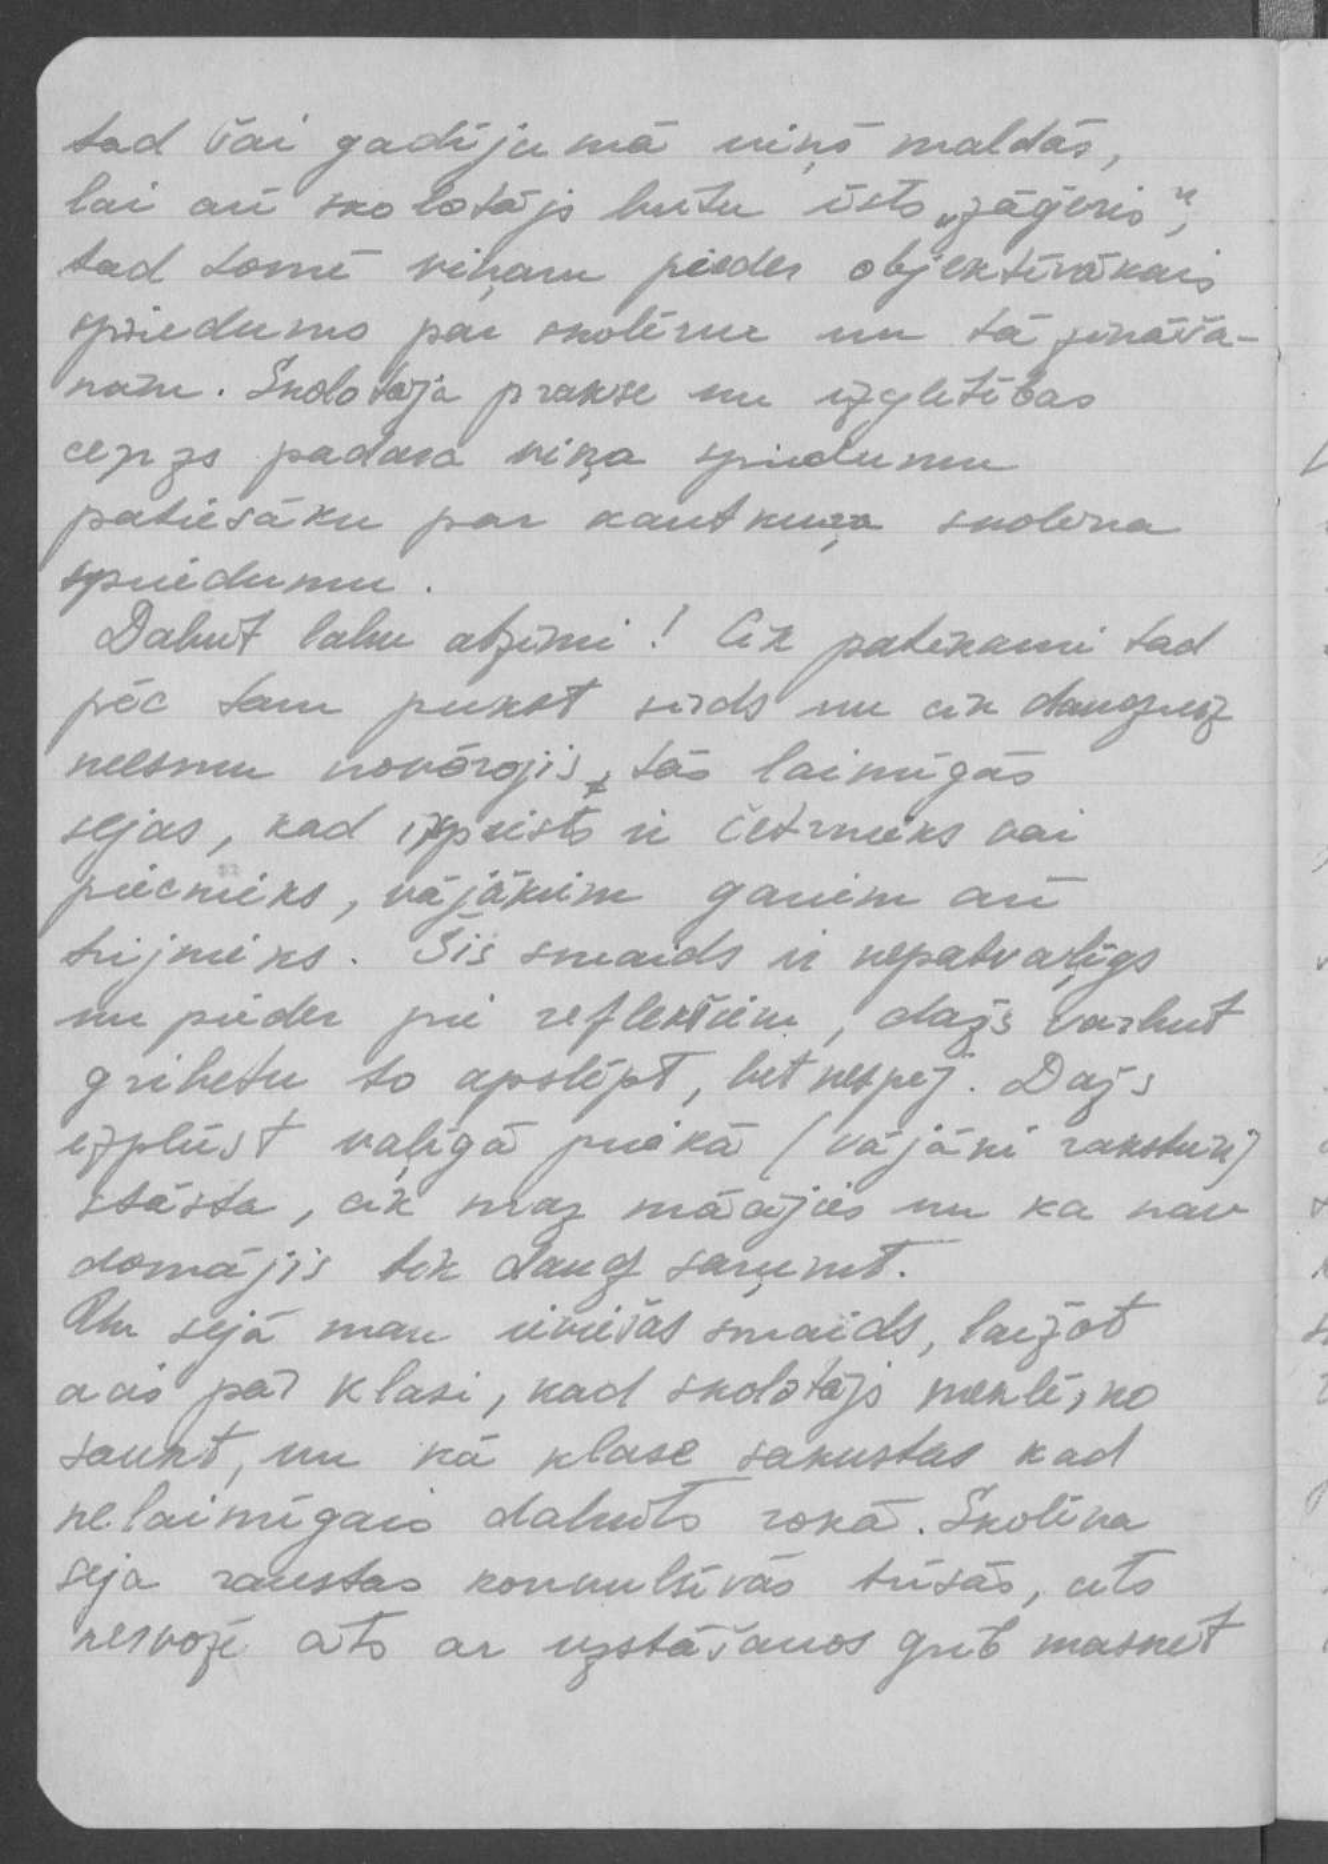 tad šai gadījumā viņš maldās,
lai arī skolotājs būtu īsts „jāģeris”,
tad tomēr viņam pieder objektīvākais
spriedums par skolēnu un tā zināša-
nām. Skolotāja prakse un izglītības
cenzs padara viņa spriedumu
patiesāku par kautkuŗa skolēna
spriedumu.
Dabūt labu atzīmi! Cik patīkami tad
pēc tam pukst sirds un cik daudzreiz
neesmu novērojis, tās laimīgās
sejas, kad izspiests ir četrnieks vai
piecnieks, vājākiem gariem arī
trijnieks. Šis smaids ir nepatvaļīgs
un pieder pie refleksiem, dažs varbūt
gribētu to apslēpt, bet nespēj. Dažs
izplūst vaļīgā priekā (vājāki raksturi)
stāsta, cik maz mācījies un ka nav
domājis tik daudz saņemt.
Un sejā man ieviešas smaids, laižot
acis pār klasi, kad skolotājs meklē, ko
saukt, un kā klase sakustas kad
nelaimīgais dabūts rokā. Skolēna
seja raustas konvulsīvās trīsās, cits
nervozē cits ar uzstāšanos grib maskēt